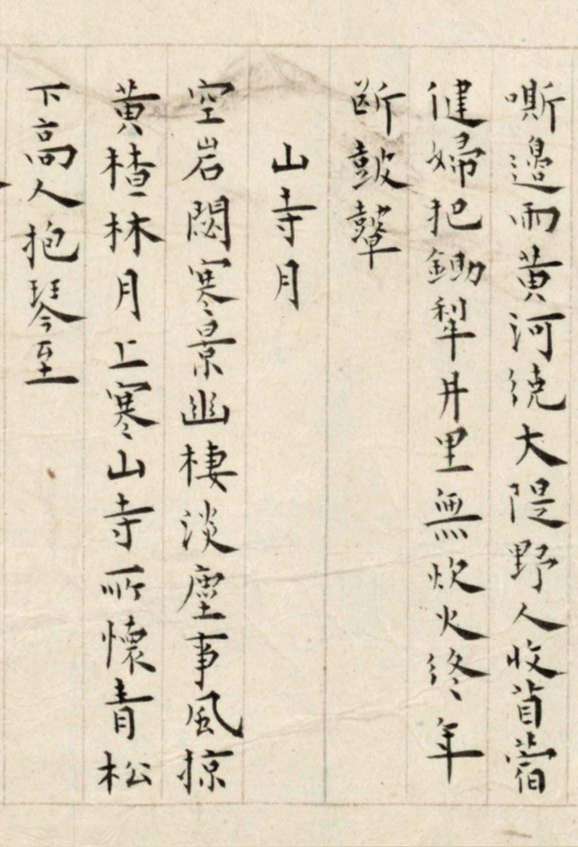 嘶邊雨黃河繞大隄野人收苜蓿
健婦把鋤犁井里無炊火終年
斷鼓鼙
山寺月
空岩閟寒景幽棲淡塵事風掠
黃楂林月上寒山寺所懷青松
下高人抱琴至